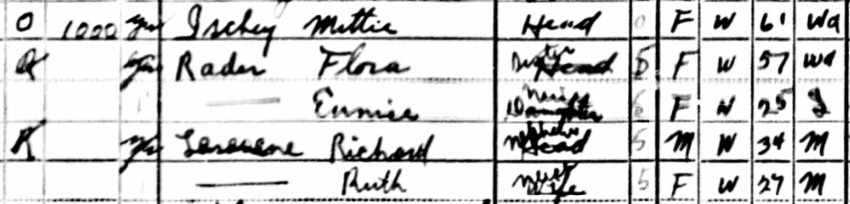 O 1000 yes Ischey Mittie Head 0 F W 61 Wd
R yes Rader Flora Sister Head 5 F W 57 Wd
— Eunice Niece Daughter 5 F W 25 S
R yes Richard Nephew Head 5 M W 34 M
— Ruth Niece Wife 5 F W 27 M